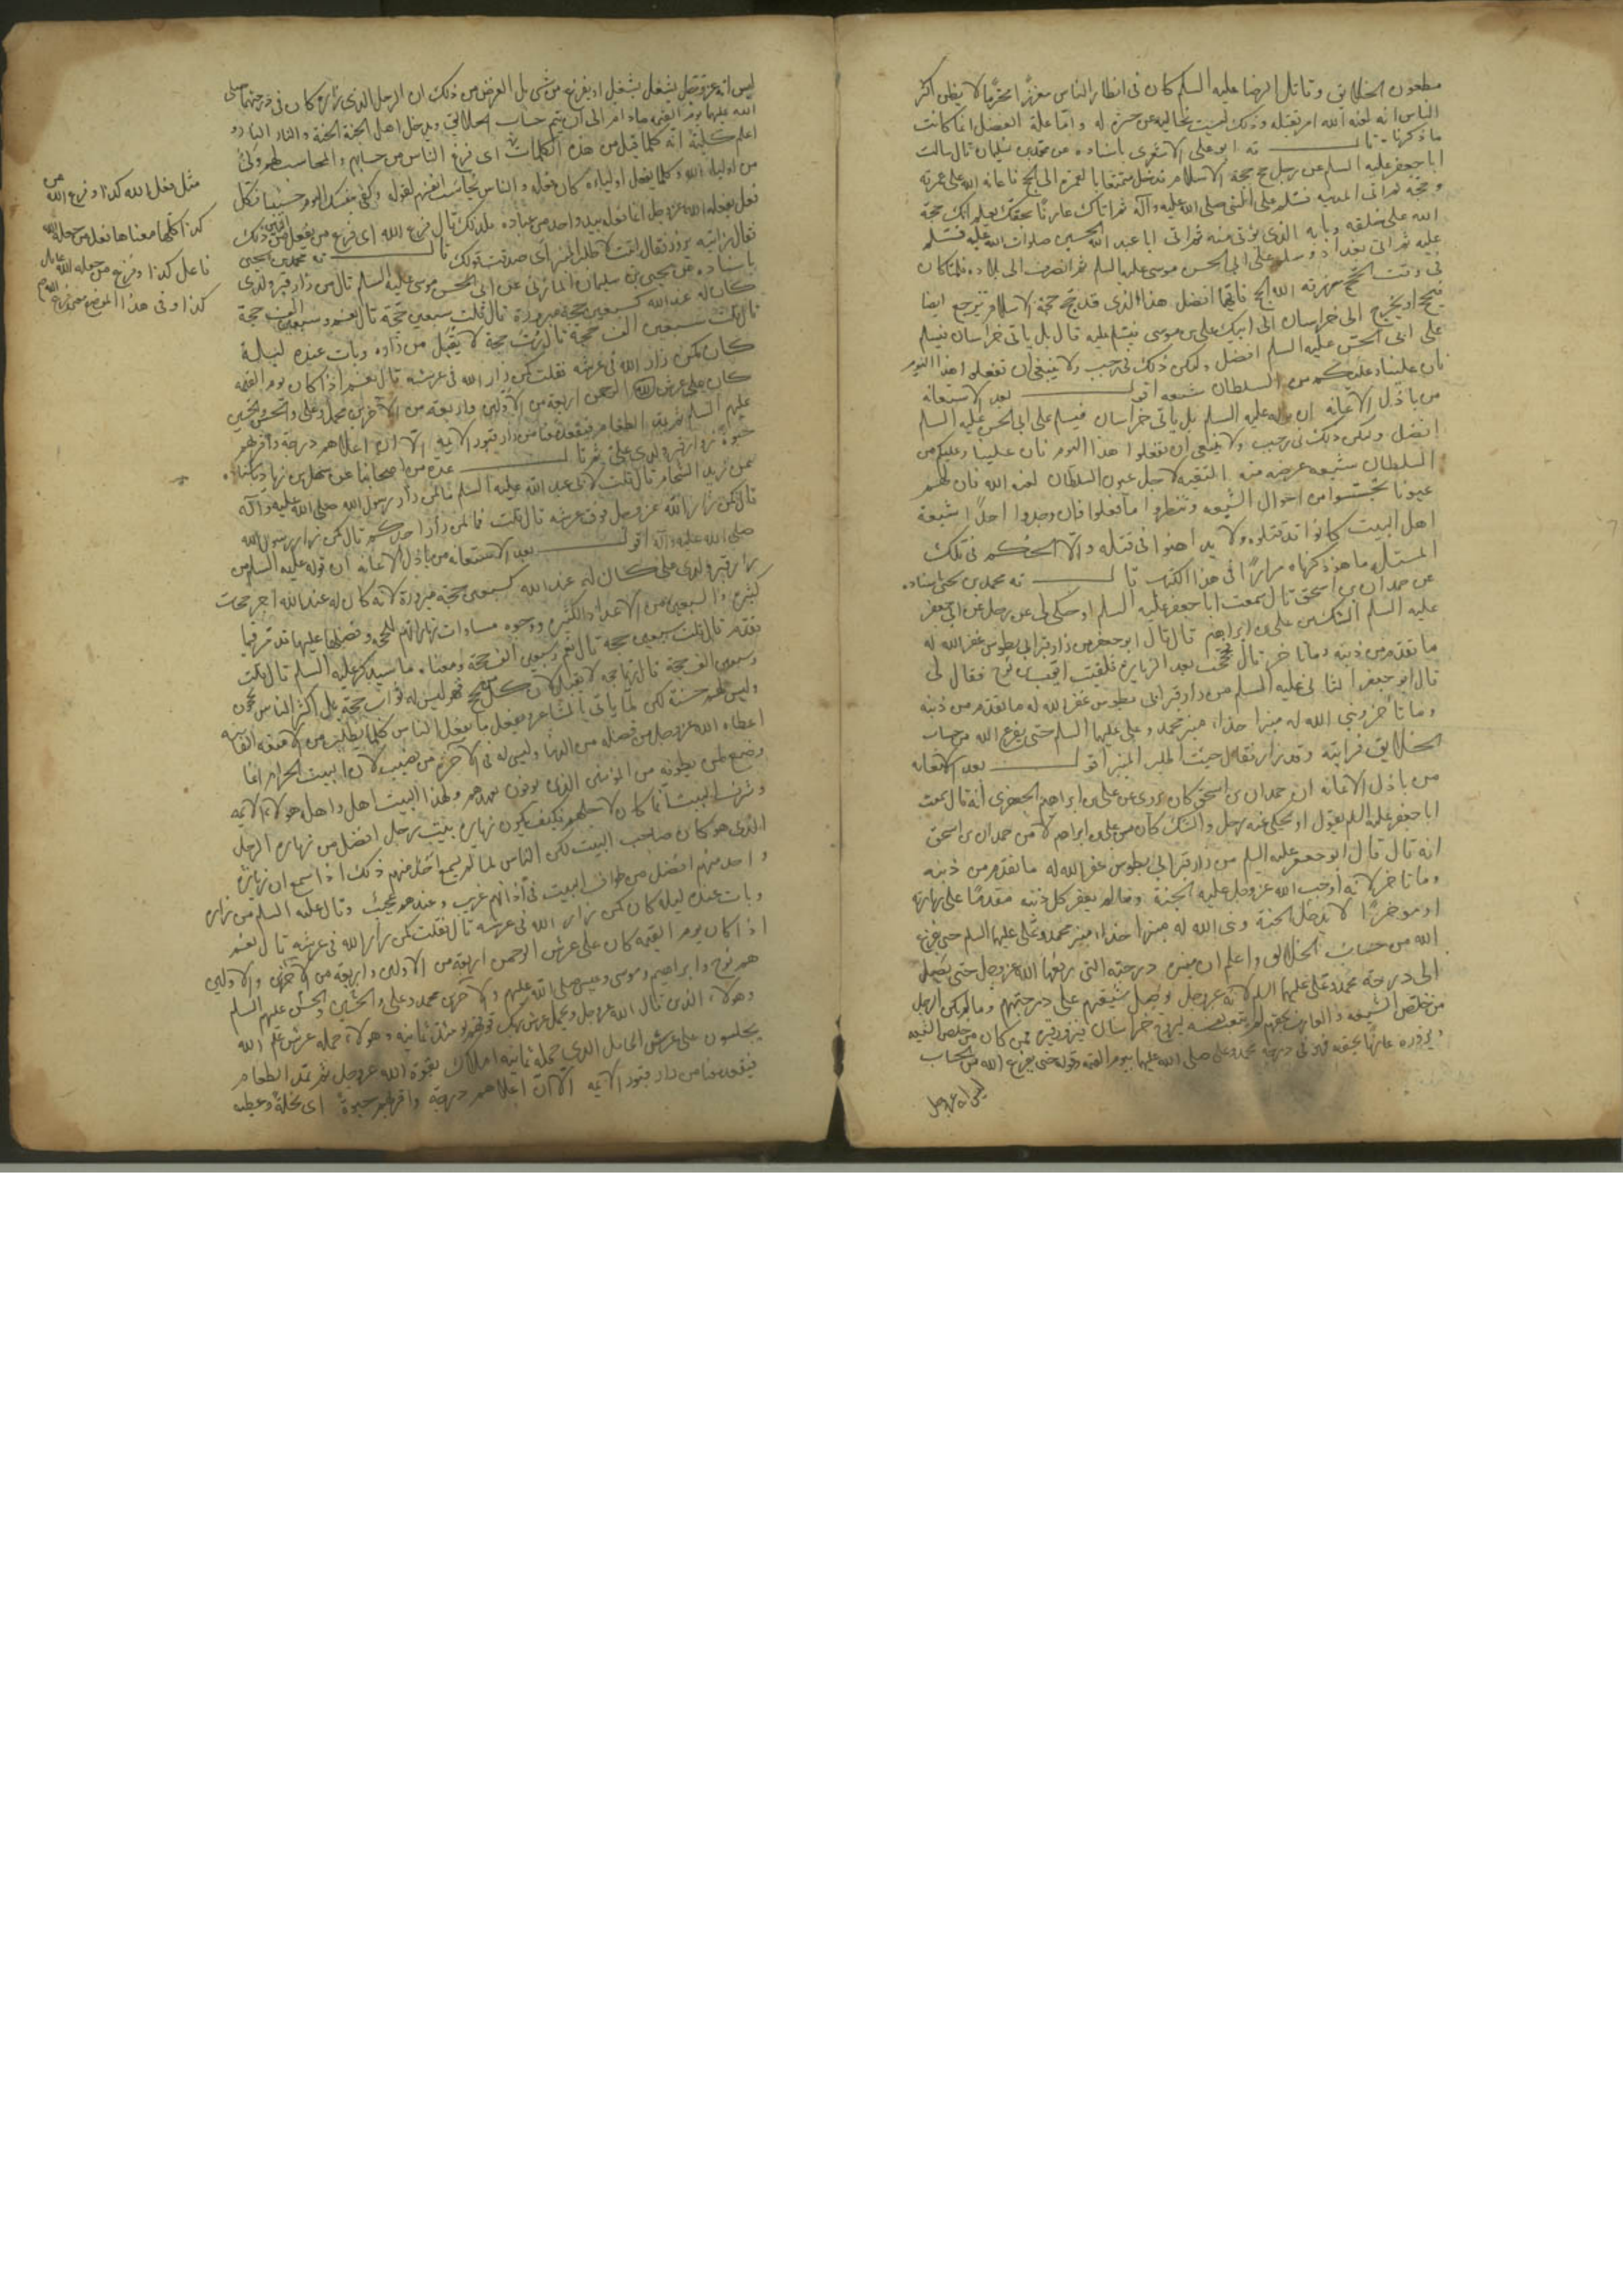 مطعون الخلايق وقاتل الرضا عليه السلم كان فى انظار الناس معززا محترما لا يظن اكثر
الناس انه لعنه الله امر بقتله وذلك له واما علة الفضل انما كانت
ما ذكرنا قال ته ابو على الاشعرى باسناده عن محمد بن سليمان قال سالت
ابا جعفر عليه السلم عن رجل حج حجة الاسلام فدخل متمتعا بالعمرة الى الحج فاعانه الله على عمرته
وحجه ثم اتى المدينه فسلم على النبى صلى الله عليه وآله ثم اتاك عارفا بحقك يعلم انك حجة
الله على خلقه وبابه الذى يؤتى منه ثم اتى ابا عبد الله الحسين صلوات الله عليه فسلم
عليه ثم اتى بغداد وسلم على ابى الحسن موسى عليه السلم ثم انصرف الى بلاده فلما كان
فى وقت الحج رزقه الله الحج فايهما افضل هذا الذى قد حج حجة الاسلام يرجع ايضا
فيحج او يخرج الى خراسان الى ابيك على بن موسى فيسلم عليه قال بل ياتى خراسان فيسلم
على ابى الحسن عليه السلم افضل وليكن ذلك فى رجب ولا ينبغى ان تفعلوا هذا اليوم
فان علينا وعليكم من السلطان شنعه اقول بعد الاستعانه
من باذل الاعانه ان قوله عليه السلم بل ياتى خراسان فيسلم على ابى الحسن عليه السلم
افضل وليكن ذلك فى رجب ولا ينبغى ان تفعلوا هذا اليوم فان علينا وعليكم من
السلطان شنعه غرضه منه التقيه لاجل عيون السلطان لعنه الله فان لهم
عيونا يتجسسوا من احوال الشيعه وتنظروا ما فعلوا فان وجدوا احدا شيعة
اهل البيت كانوا قد قتلوه ولا يداهنوا فى قتله والا الحكم فى تلك
المسئله ما هو ذكرناه مرارا فى هذا الكتاب قال ته محمد بن يحيى باسناده
عن حمدان بن اسحق قال سمعت ابا جعفر عليه السلم او حكى لى عن رجل عن ابى جعفر
عليه السلم الشك من على بن ابراهيم قال قال ابو جعفر من زار قبر ابى بطوس غفر الله له
ما تقدم من ذنبه وما تاخر قال فحججت بعد الزياره فلقيت ايوب بن نوح فقال لى
قال ابو جعفر الثانى عليه السلم من زار قبر ابى بطوس غفر الله له ما تقدم من ذنبه
وما تأخر وبنى الله له منبرا حذاء منبر محمد وعلى عليهما السلم حتى يفرغ الله من حساب
الخلايق فرايته وقد زار فقال جئت اطلب المنبر اقول بعد الاستعانه
من باذل الاعانه ان حمدان بن اسحق كان يروى عن على بن ابراهيم الجعفرى انه قال سمعت
ابا جعفر عليه السلم يقول او يحكى عنه رجل والشك كان من على بن ابراهيم لا من حمدان بن اسحق
انه قال قال ابو جعفر عليه السلم من زار قبر ابى بطوس غفر الله له ما تقدم من ذنبه
وما تاخر لانه اوجب الله عز وجل عليه الجنة وما لم يغفر كل ذنبه مقدما على زيارته
او موخرا لا يدخل الجنة وبنى الله له منبرا حذاء منبر محمد وعلى عليهما السلم حتى يفرغ
الله من حساب الخلايق واعلم ان منبره درجته التى يرفعها الله عز وجل حتى يصل
الى درجة محمد وعلى عليهما السلم لانه عز وجل وصل شيعتهم على درجتهم وما لم يكن الرجل
من خلص الشيعه والعارف بحقهم لم يتعب نفسه ليروح خراسان فيزور قبره فمن كان من خلص الشيعه
ويزوره عارفا بحقه فهو فى درجة محمد وعلى صلى الله عليهما يوم القيمه وقوله حتى يفرغ الله من الحساب
ليس انه عز وجل
ليس انه عز وجل يشغل بشغل او يفرغ من شى بل الغرض من ذلك ان الرجل الذى زاره كان فى درجتهما صلى
الله عليهما يوم القيمه الى ان يتم حساب الخلايق ويدخل اهل الجنة الجنة والنار النار و
اعلم كلية انه كلما قيل من هذه الكلمات اى فرغ الناس من حسابهم والمحاسب لهم ولى
من اولياء الله وكلما يفعل اولياءه كان فعله والناس يحاسب انفسهم لقوله وكفى بنفسك اليوم حسيبا فكل
فعل يفعله الله عز وجل انما فعله بيد واحد من عباده فلذلك قال فرغ الله اى فرغ من يفعل من ذلك
فقال رايته يزور فقال اتيت لاطلب المنبر اى صدقت قولك قال ته محمد بن يحيى
باسناده عن يحيى بن سليمان المازنى عن ابى الحسن موسى عليه السلم قال من زار قبر ولدى
كان له عند الله كسبعين حجة مبرورة قال قلت سبعين حجة قال نعم وسبعين الف حجة
قال قلت سبعين الف حجة قال رب حجة لا يقبل من زاره وبات عنده ليلة
كان كمن زار الله فى عرشه فقلت كمن زار الله فى عرشه قال نعم اذا كان يوم القيمه
كان على عرش الرحمن اربعة من الاولين واربعة من الآخرين محمد وعلى والحسن والحسين
عليهم السلم ثم يمد الطعام فيقعد معنا من زار قبور الائمه الا ان اعلاهم درجة واقربهم
حبوة زوار قبر ولدى على ثم قال عدة من اصحابنا عن سهل بن زياد
عن زيد الشحام قال قلت لابى عبد الله عليه السلم ما لمن زار رسول الله صلى الله عليه وآله
قال كمن زار الله عز وجل فوق عرشه قال قلت فما لمن زار احدكم قال كمن زار رسول الله
صلى الله عليه وآله اقول بعد الاستعانه من باذل الاعانه ان قوله عليه السلم من
زار قبر ولدى على كان له عند الله كسبعين حجة مبرورة لانه كان له عند الله اجر حجات
كثيره والسبعين من الاعداد الكثيره ووجوه مساوات زيارتهم للحجه وفضلها عليها قد مر فيما
تقدم قال قلت سبعين حجه قال نعم وسبعين الف حجة ومعناه ما سيذكر عليه السلم قال قلت
وسبعين الف حجة قال رب حجه لا تقبل لان كل من حج فهو ليس له ثواب حجة بل اكثر الناس يحجون
وليس لهم حسنة لكن لما ياتى بالمشاعر ويفعل ما يفعل الناس
اعطاه الله عز وجل من فضله من الدنيا وليس له فى الآخرة من نصيب لان البيت الحرام انما
وضع لمن يطوفه من المؤمنين الذى يوفون بعهدهم ولهذا البيت اهل واهل هولاء الائمه
وشرف البيت انما كان لاجلهم فكيف يكون زيارة بيت رجل افضل من زيارة الرجل
الذى هو كان صاحب البيت لكن الناس لما لم يسمع اكثر منهم ذلك اذا سمع ان زيارة
واحد منهم افضل من طواف البيت فى آذانهم غريب وعندهم عجيب وقال عليه السلم من زاره
وبات عنده ليلة كان كمن زار الله فى عرشه قال فقلت كمن زار الله فى عرشه قال نعم
اذا كان يوم القيمه كان على عرش الرحمن اربعة من الاولين واربعة من الآخرين والاولين
هم نوح وابراهيم وموسى وعيسى صلى الله عليهم والآخرين محمد وعلى والحسن والحسين عليهم السلم
وهولاء الذى قال الله عز وجل ويحمل عرش ربك فوقهم يومئذ ثمانيه وهولاء حمله عرش علم الله
يجلسون على عرش الذى حمله ثمانيه املاك بقوة الله عز وجل ثم يمد الطعام
فيقعد معنا من زار قبور الائمه الا ان اعلاهم درجة واقربهم حبوة اى نحلة وعطيه
مثل فعل الله كذا وفرغ الله من
كذا كلها معناها فعل من جعله الله
فاعل كذا وفرغ من جعله الله عامل
كذا وفى هذا الموضع معنى فراغ الله